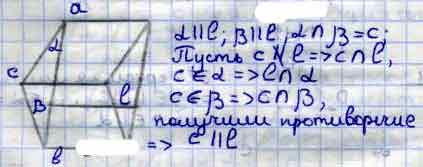 a
α
c
β
l
b
α∥l; β∥l, α∩β=c;
Пусть c∦l=>c∩l,
c∈α=>l∩α
c∈β=>c∩β,
получили противоречие
=> c∥l